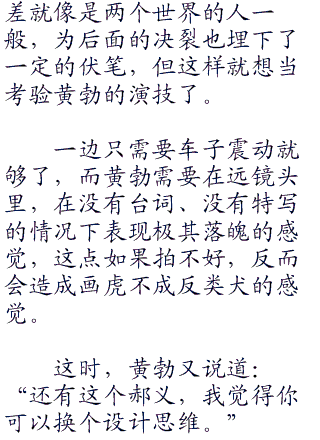 差就像是两个世界的人一
般，为后面的决裂也埋下了
一定的伏笔，但这样就想当
考验黄勃的演技了。
一边只需要车子震动就
够了，而黄勃需要在远镜头
里，在没有台词、没有特写
的情况下表现极其落魄的感
觉，这点如果拍不好，反而
会造成画虎不成反类犬的感
觉。
这时，黄勃又说道：
“还有这个郝义，我觉得你
可以换个设计思维。”